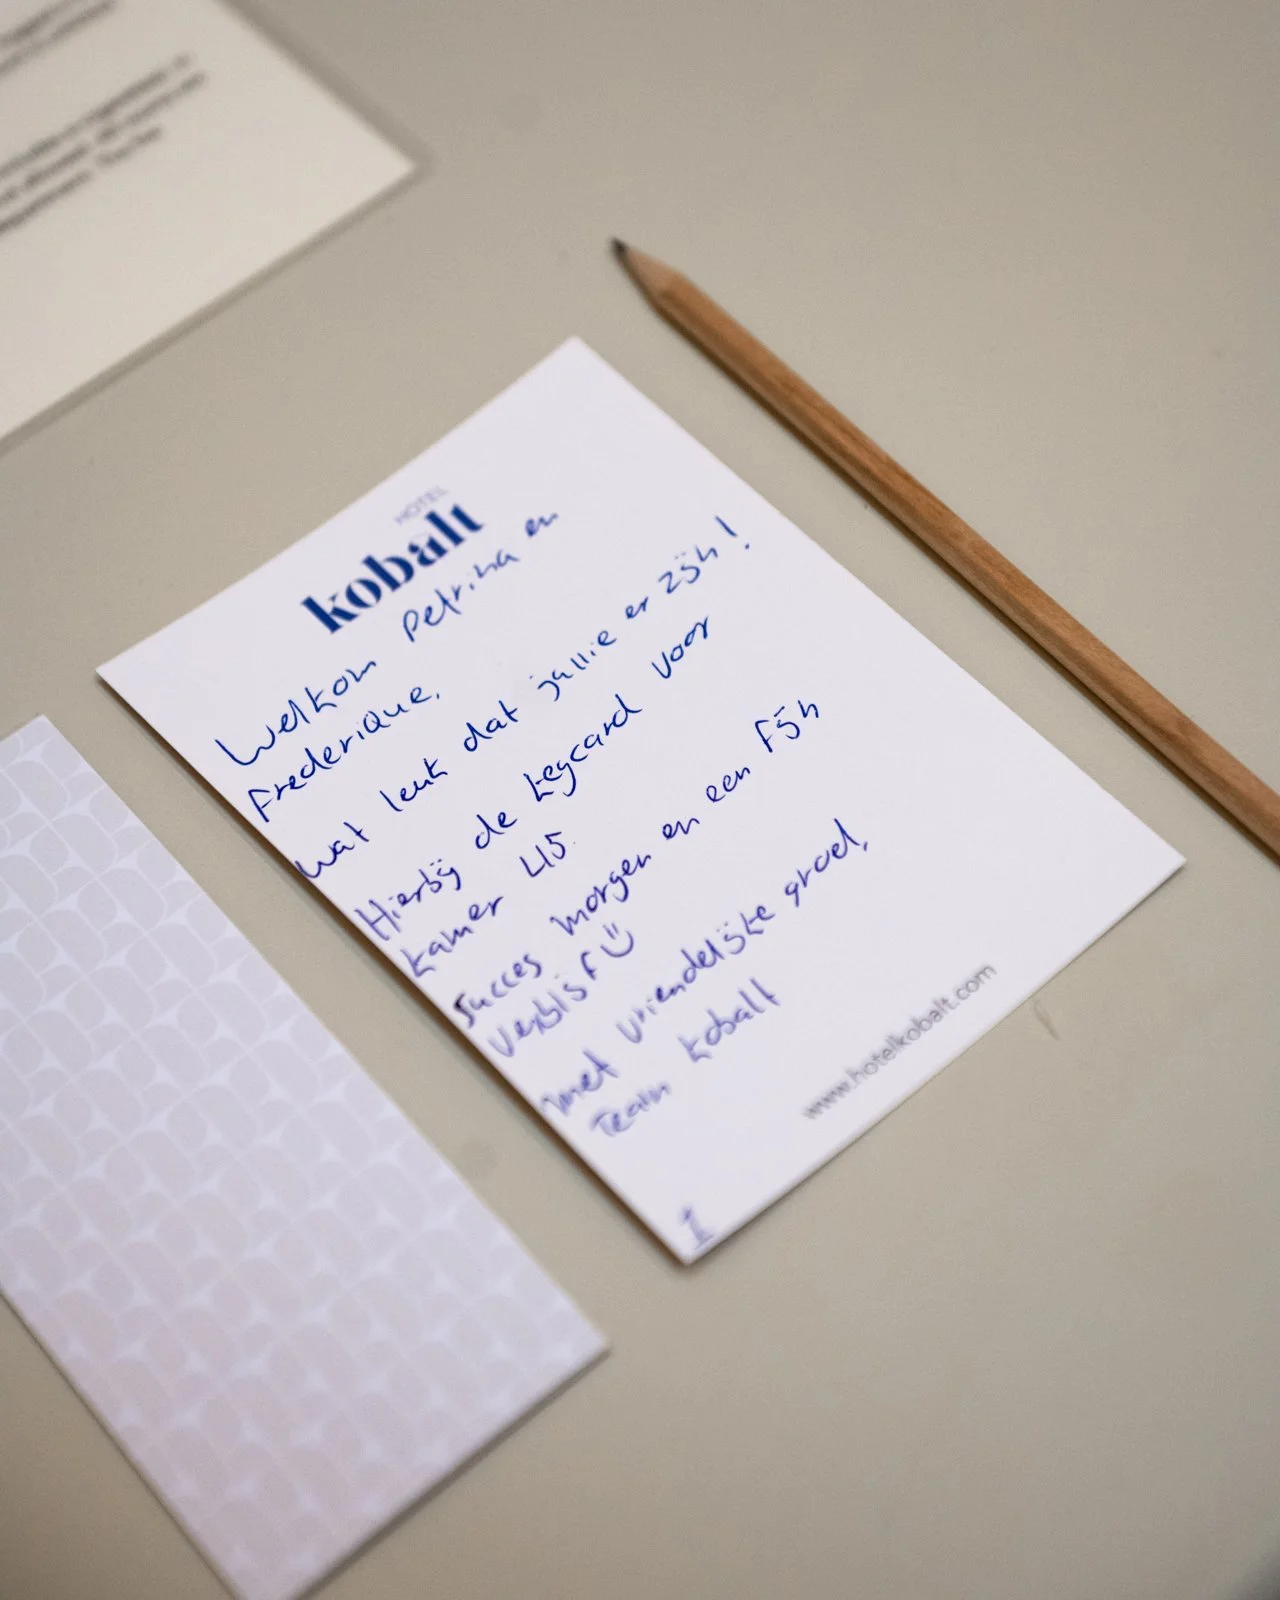 HOTEL
kobalt
Welkom Petrina en
Frederique,
Wat leuk dat jullie er zijn!
Hierbij de keycard voor
kamer 415.
Succes morgen en een fijn
verblijf ☺
Met vriendelijke groet,
Team kobalt
www.hotelkobalt.com